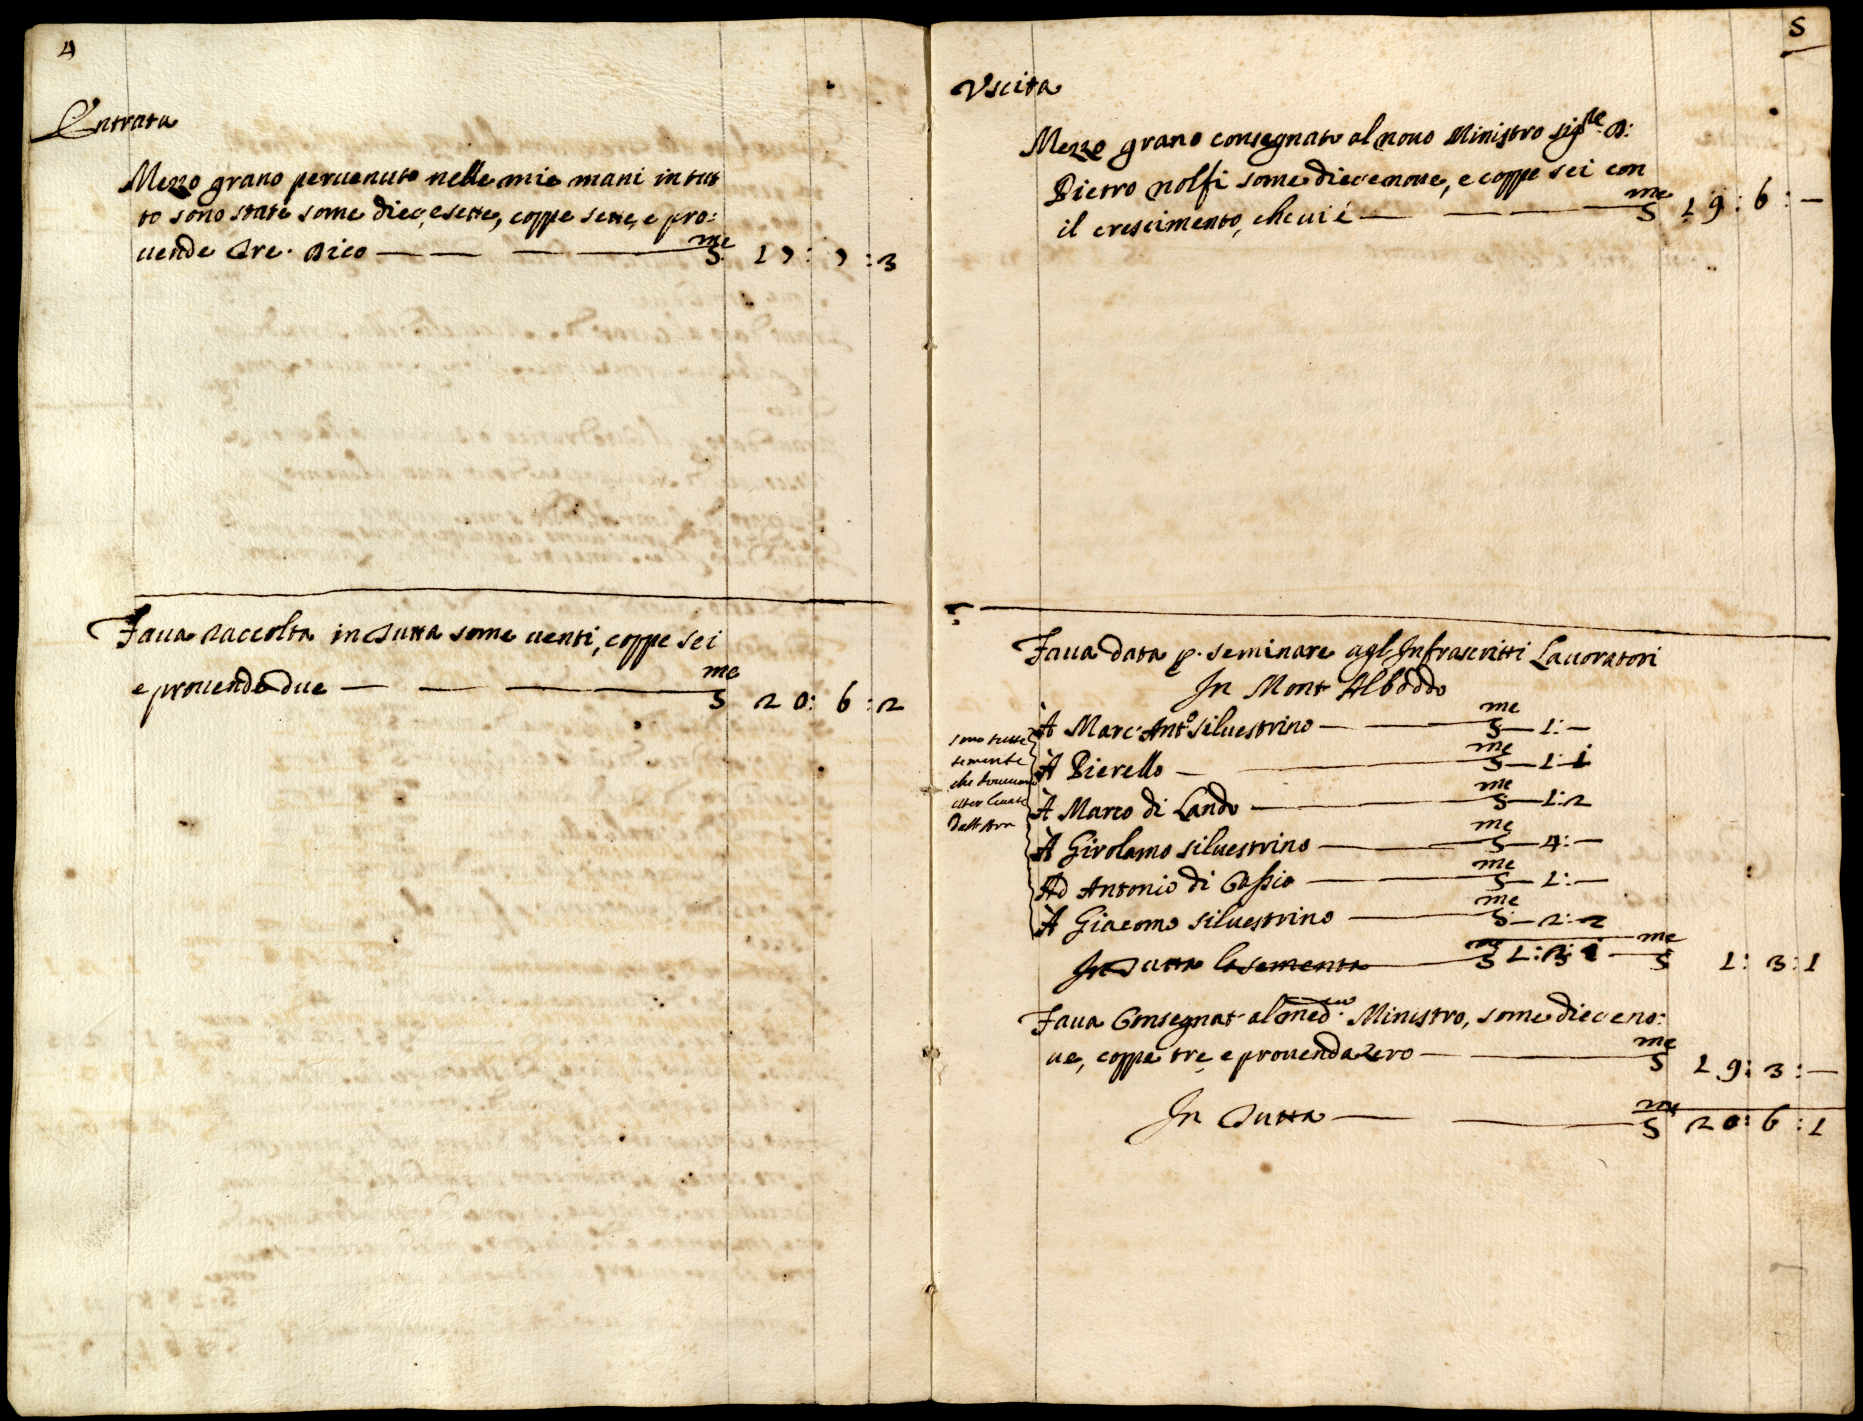 4
Entrata
Mezzo grano peruenuto nelle mie mani in tut
to sono state some dieçesette, coppe sette, e pro:
uende tre. Dico — — — — S.me 17 : 7 : 3
Faua raccolta in tutta some uenti, coppe sei
e prouende due — — — S.me 20 : 6 : 2
5
Vscita
Mezzo grano consegnato al nouo Ministro sig.re D:
Pietro nolfi some diecenoue, e coppe sei con
il crescimento, che ui é — — — — S.me 19 : 6 : —
Faua data p. seminare agl'Infrascritti Lauoratori
In Mont'Alboddo
À Marc'Ant.o Siluestrino — — S.me — 1: —
À Pierello — — S.me — 1: 1
À Marco di Lando — — S.me — 1: 2
À Girolamo siluestrino — — S.me — 4: —
Ad Antonio di Cassio — — S.me — 1: —
À Giacomo siluestrino — — S.me — 2: 2
sono tutte
semente
che
esser leuate
In tutta la sementa — S.me 1: 3: 1 — S.me 1: 3: 1
Faua Consegnat' al med.o Ministro, some dieceno:
ue, coppe tre, e prouenda zero — — S.me 19: 3: —
In tutta — — S.me 20: 6: 1